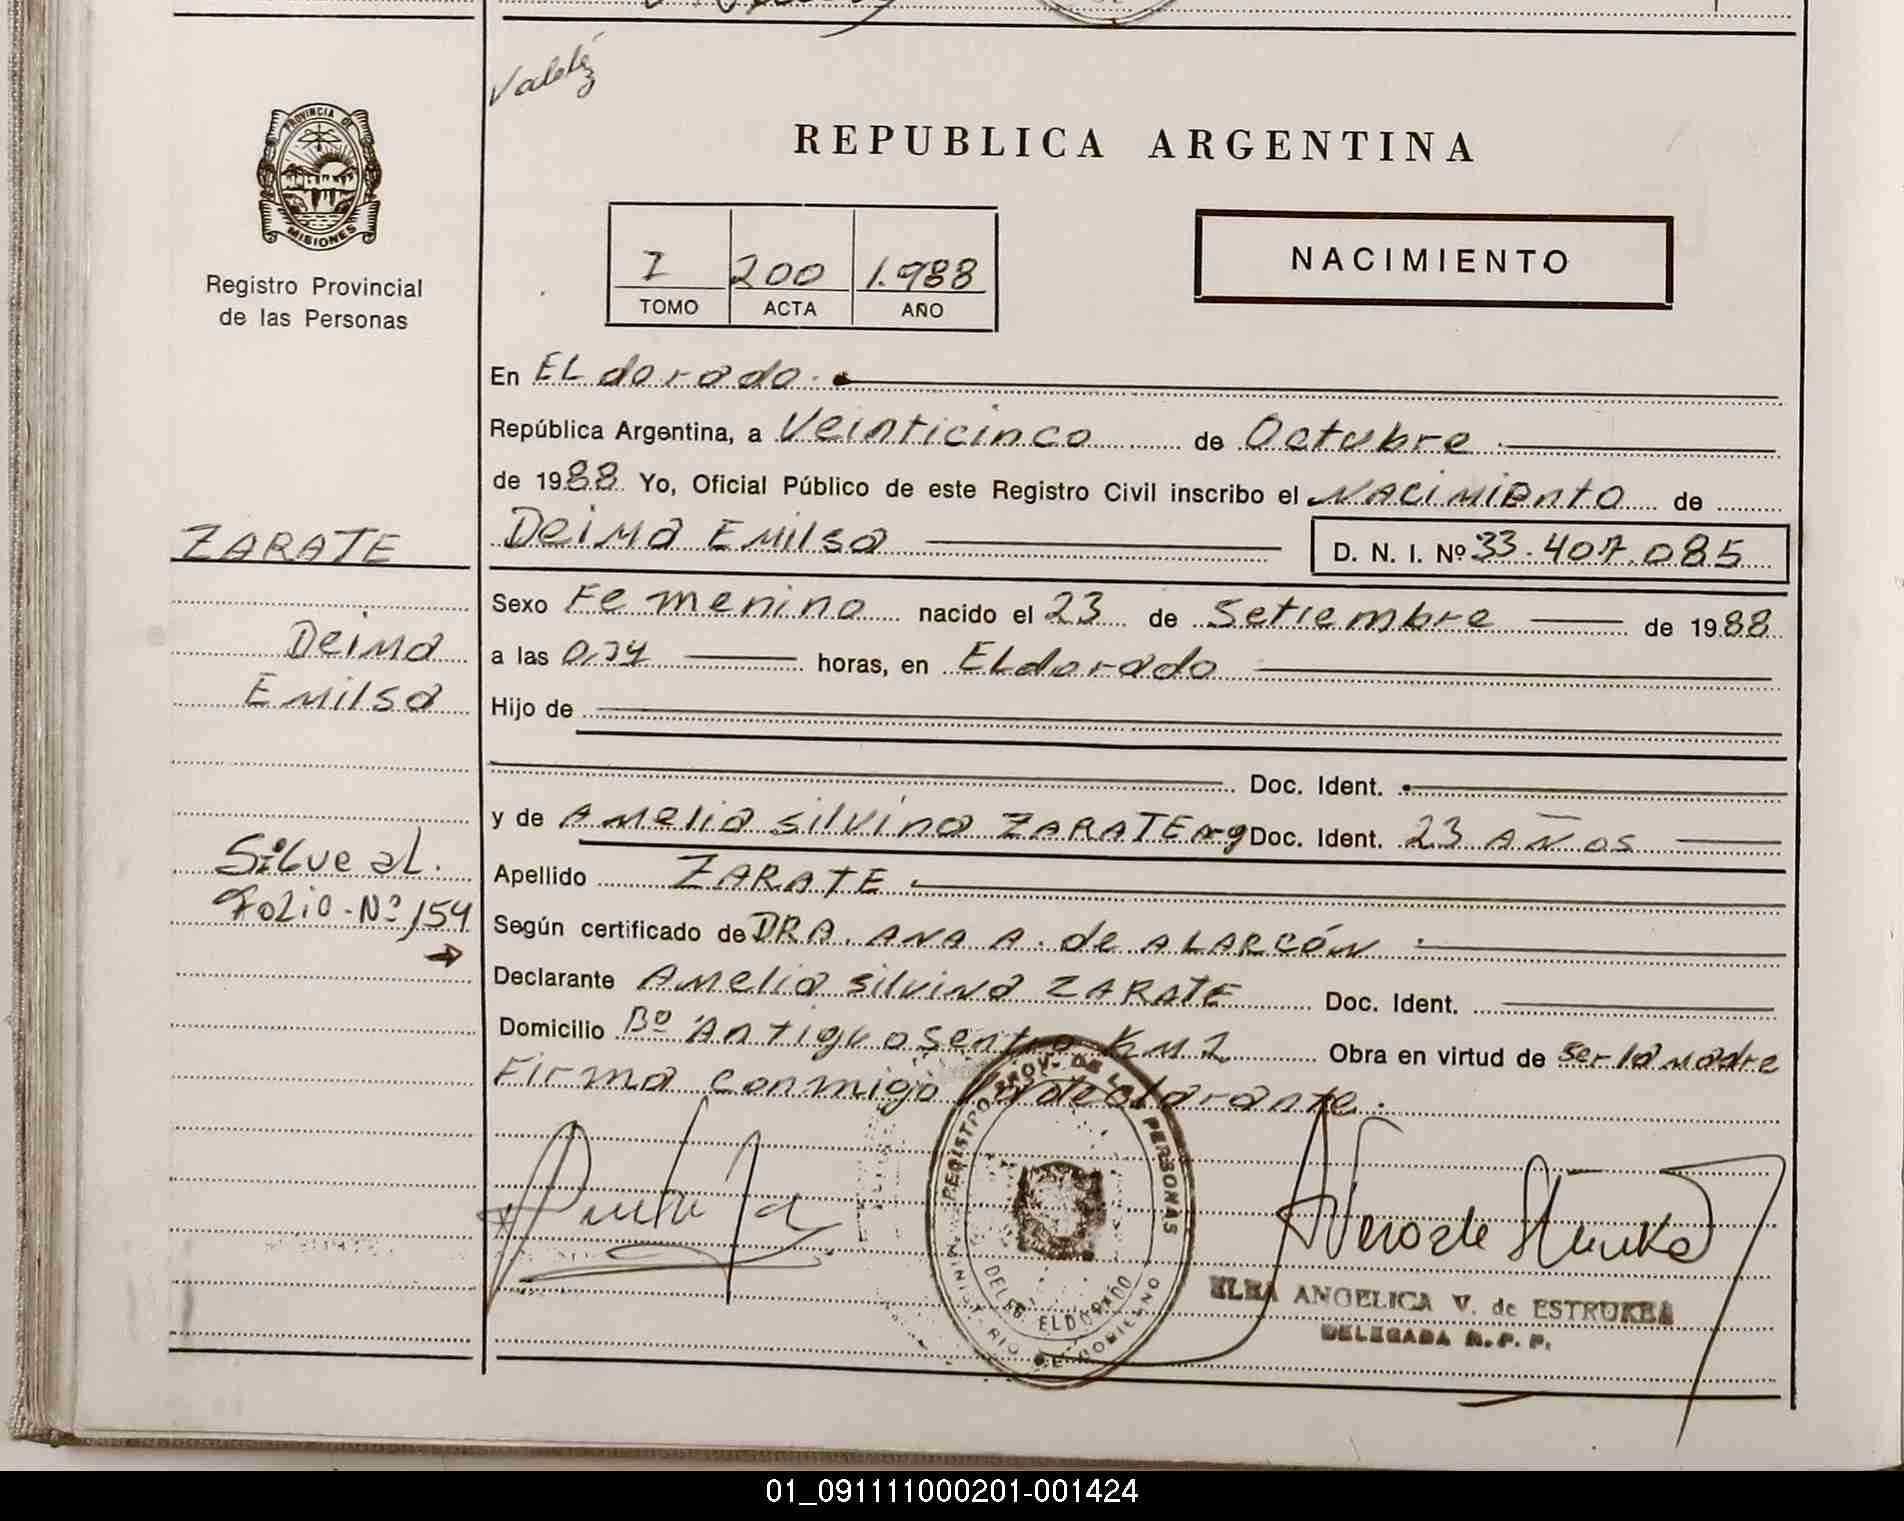 Valdéz
PROVINCIA DE
MISIONES
Registro Provincial
de las Personas
REPUBLICA ARGENTINA
NACIMIENTO
I 200 1.988
TOMO ACTA AÑO
En ELdorado.
República Argentina, a Veinticinco de Octubre.
de 1988 Yo, Oficial Público de este Registro Civil inscribo el NACiMiento de
Deima Emilsa D. N. I. Nº 33.407.085
ZARATE
Deima
Emilsa
Sigue al.
Folio-Nº 154
Sexo Femenino nacido el 23 de Setiembre de 1988
a las horas, en ELdorado
Hijo de
Doc. Ident.
y de Amelia silvina ZARATE Arg Doc. Ident. 23 AÑos
Apellido ZARATE
Según certificado de DRA. ANA A. de ALARCÓN
Declarante Amelia silvina ZARATE Doc. Ident.
Domicilio Bº Antiguo sentro Km 2 Obra en virtud de ser la madre
Firma conmigo la declarante.
REGISTRO PROV. DE LAS PERSONAS
DELEG. ELDORADO
MINISTERIO DE GOBIERNO
ELBA ANGELICA V. de ESTRUKEA
DELEGADA R. P. P.
01_091111000201-001424